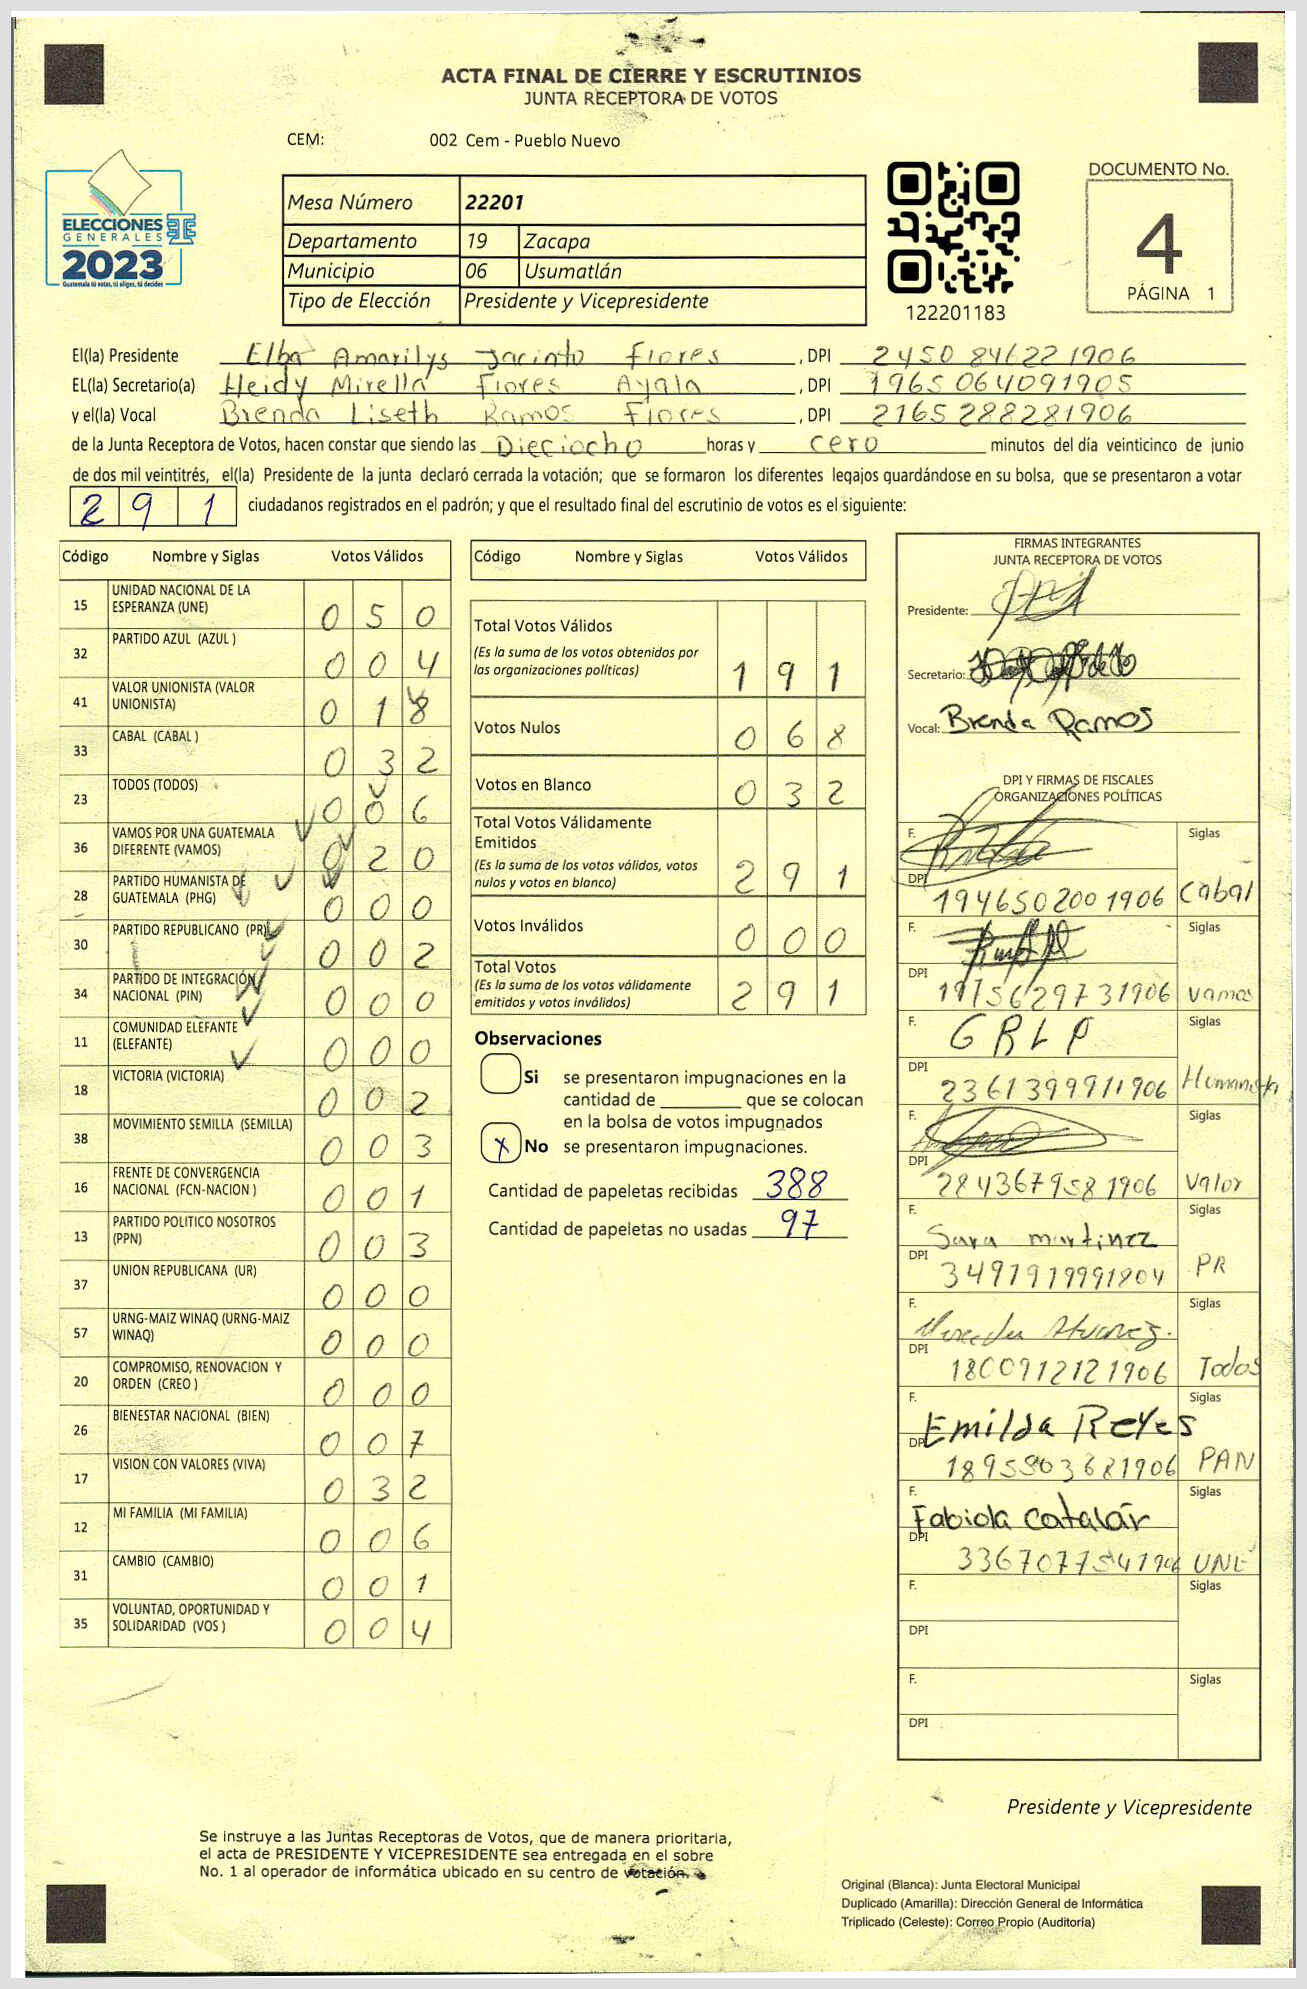 ACTA FINAL DE CIERRE Y ESCRUTINIOS
JUNTA RECEPTORA DE VOTOS
CEM: 002 Cem - Pueblo Nuevo
ELECCIONES
GENERALES
2023
Guatemala tú votas, tú eliges, tú decides
Mesa Número 22201
Departamento 19 Zacapa
Municipio 06 Usumatlán
Tipo de Elección Presidente y Vicepresidente
122201183
DOCUMENTO No.
4
PÁGINA 1
El(la) Presidente Elba Amarilys Jacinto Flores, DPI 2450 84622 1906
EL(la) Secretario(a) Heidy Mirella Flores Ayala, DPI 1965 06409 1905
y el(la) Vocal Brenda Liseth Ramos Flores, DPI 2165 28828 1906
de la Junta Receptora de Votos, hacen constar que siendo las Dieciocho horas y cero minutos del día veinticinco de junio
de dos mil veintitrés, el(la) Presidente de la junta declaró cerrada la votación; que se formaron los diferentes legajos guardándose en su bolsa, que se presentaron a votar
291 ciudadanos registrados en el padrón; y que el resultado final del escrutinio de votos es el siguiente:
Código Nombre y Siglas Votos Válidos
15 UNIDAD NACIONAL DE LA ESPERANZA (UNE) 050
32 PARTIDO AZUL (AZUL ) 004
41 VALOR UNIONISTA (VALOR UNIONISTA) 018
33 CABAL (CABAL ) 032
23 TODOS (TODOS) 006
36 VAMOS POR UNA GUATEMALA DIFERENTE (VAMOS) 020
28 PARTIDO HUMANISTA DE GUATEMALA (PHG) 000
30 PARTIDO REPUBLICANO (PR) 002
34 PARTIDO DE INTEGRACIÓN NACIONAL (PIN) 000
11 COMUNIDAD ELEFANTE (ELEFANTE) 000
18 VICTORIA (VICTORIA) 002
38 MOVIMIENTO SEMILLA (SEMILLA) 003
16 FRENTE DE CONVERGENCIA NACIONAL (FCN-NACION ) 001
13 PARTIDO POLITICO NOSOTROS (PPN) 003
37 UNION REPUBLICANA (UR) 000
57 URNG-MAIZ WINAQ (URNG-MAIZ WINAQ) 000
20 COMPROMISO, RENOVACION Y ORDEN (CREO ) 000
26 BIENESTAR NACIONAL (BIEN) 007
17 VISION CON VALORES (VIVA) 032
12 MI FAMILIA (MI FAMILIA) 006
31 CAMBIO (CAMBIO) 001
35 VOLUNTAD, OPORTUNIDAD Y SOLIDARIDAD (VOS ) 004
Código Nombre y Siglas Votos Válidos
Total Votos Válidos 191
(Es la suma de los votos obtenidos por
las organizaciones políticas)
Votos Nulos 068
Votos en Blanco 032
Total Votos Válidamente
Emitidos 291
(Es la suma de los votos válidos, votos
nulos y votos en blanco)
Votos Inválidos 000
Total Votos 291
(Es la suma de los votos válidamente
emitidos y votos inválidos)
Observaciones
Si se presentaron impugnaciones en la
cantidad de ________ que se colocan
en la bolsa de votos impugnados
X No se presentaron impugnaciones.
Cantidad de papeletas recibidas 388
Cantidad de papeletas no usadas 97
FIRMAS INTEGRANTES
JUNTA RECEPTORA DE VOTOS
Presidente:
Secretario:
Vocal: Brenda Ramos
DPI Y FIRMAS DE FISCALES
ORGANIZACIONES POLÍTICAS
F. Siglas
DPI 194650200 1906 Cabal
F. Siglas
DPI 197562973 1906 Vamos
F. GRLP Siglas
DPI 236139991 1906 Humanista
F. Siglas
DPI 284367958 1906 Valor
F. Sara martinez Siglas
DPI PR
F. Siglas
DPI 180091212 1906 Todos
F. Emilda Reyes Siglas
DPI PAN
F. Fabiola Catalán Siglas
DPI 336707754 1906 UNE
F. Siglas
DPI
F. Siglas
DPI
Presidente y Vicepresidente
Se instruye a las Juntas Receptoras de Votos, que de manera prioritaria,
el acta de PRESIDENTE Y VICEPRESIDENTE sea entregada en el sobre
No. 1 al operador de informática ubicado en su centro de votación.
Original (Blanca): Junta Electoral Municipal
Duplicado (Amarilla): Dirección General de Informática
Triplicado (Celeste): Correo Propio (Auditoría)